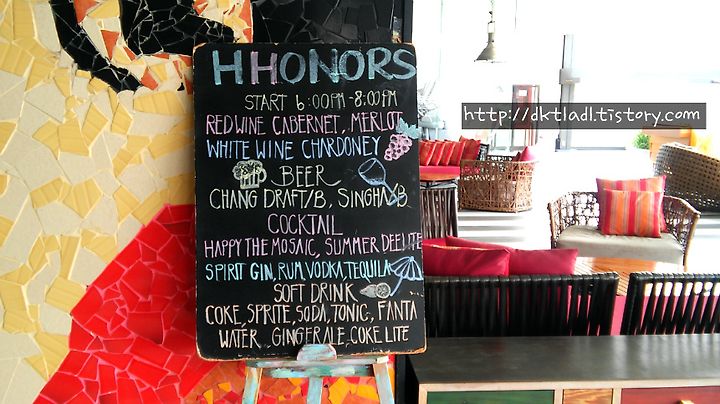 HHONORS
START 6:00PM-8:00PM
RED WINE CABERNET, MERLOT
WHITE WINE CHARDONEY
BEER
CHANG DRAFT/B, SINGHA/B
COCKTAIL
HAPPY THE MOSAIC, SUMMER DEELITE
SPIRIT GIN, RUM, VODKA, TEQUILA
SOFT DRINK
COKE, SPRITE, SODA, TONIC, FANTA
WATER, GINGERALE, COKE LITE
http://dktladl.tistory.com